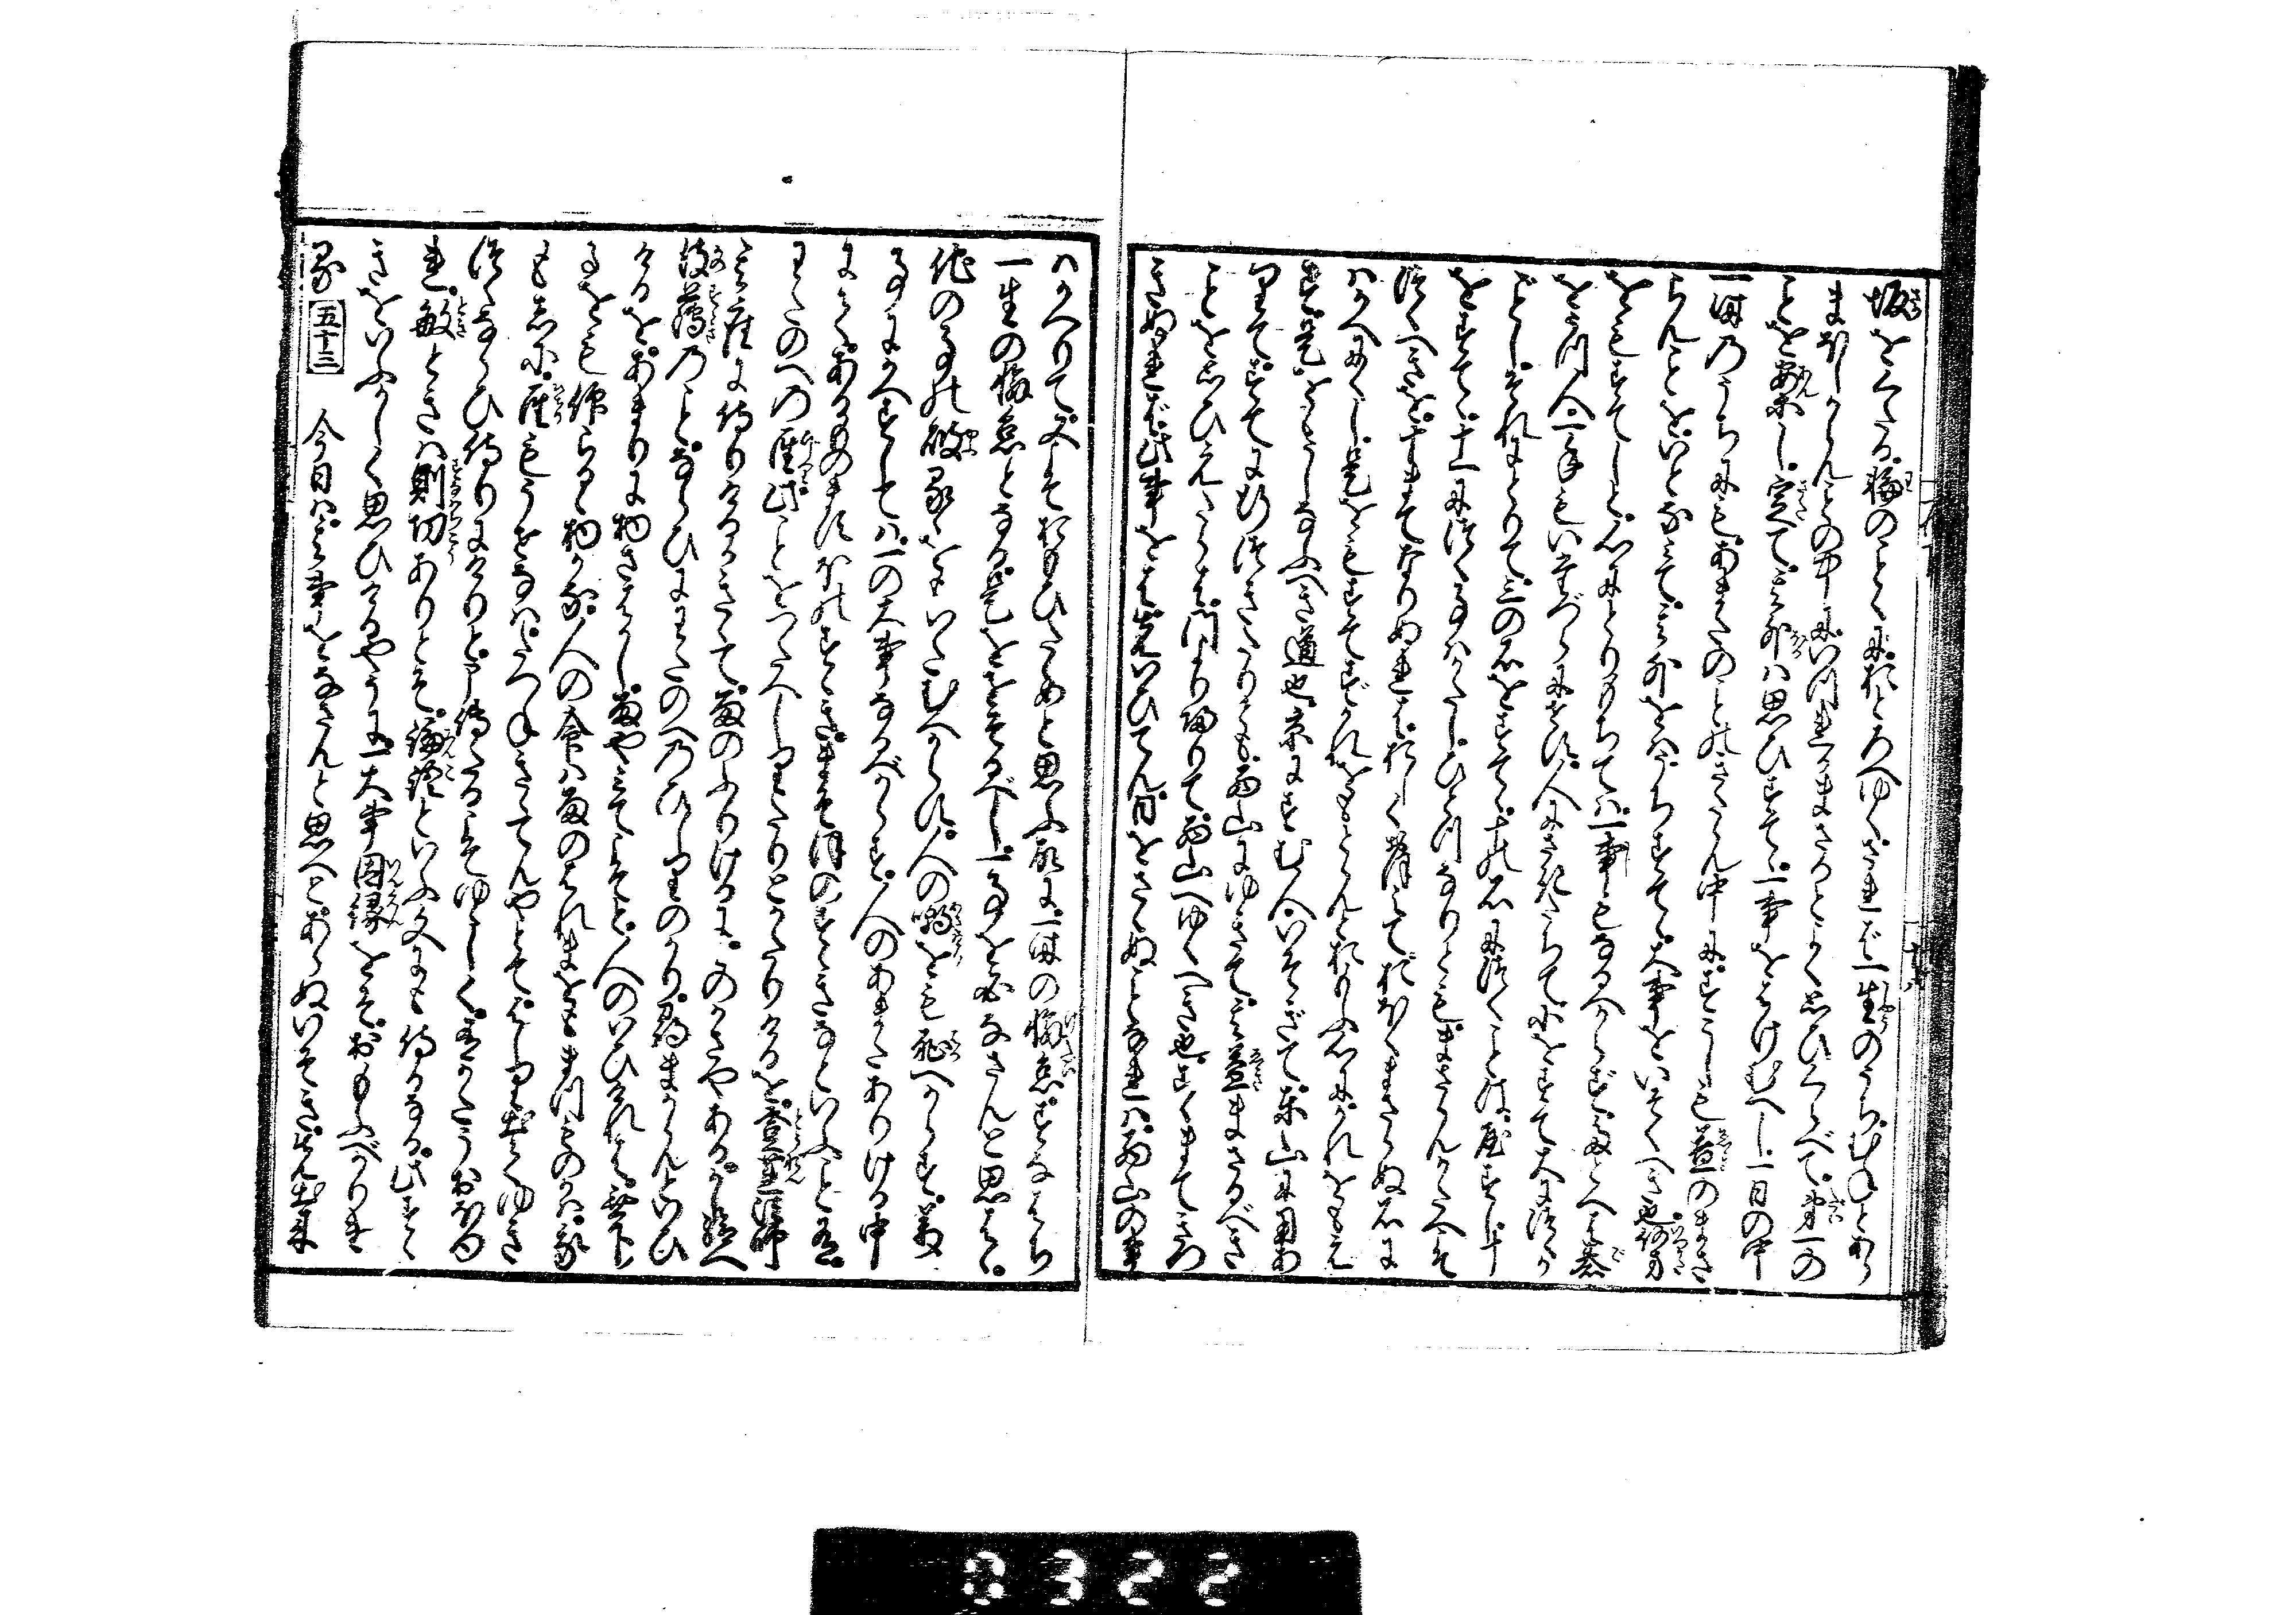 坂をくたる輪のことくに、おとろへゆく。されば一生のうち、むねとあら
まほしからんことの中に、いつれかまさるとよく思ひくらべて、第一の
ことを案し定て、其外は思ひすてゝ、一事をはけむへし。一日の中
一時のうちにも、あまたのことのきたらん中に、すこしも益のまさ
らんことをいとなみて、其外をはうちすてゝ、大事をいそくへき也。何方
をもすてしと心にとりもちては、一事もなるへからず。たとへは碁
をうつ人、一手もいたづらにせす、人にさきたちて、小をすて大につくか
ごとし。それにとりて、三の石をすてゝ、十の石につくことは、やすし。十
をすてゝ、十一につくことはかたし。ひとつなりとも、まさらんかたへこそ
つくへきを、十まてなりぬれは、おしく覚えて、おほくまさらぬ石に
はかへにくし。是をもすてず、かれをもとらんとおもふ心に、かれをもえ
す、是をもうしなふへき道也。京にすむ人、いそぎて東山に用あ
りて、すてに行つきたりとも、西山にゆきて、其益まさるべき
ことを思ひえたらは、門より帰りて西山へゆくへき也。こゝまてきつ
きぬれば、此事をはまついひてん。日をさゝぬことなれは、西山の事
はかへりて又こそおもひたゝめと思ふ故に、一時の懈怠、すなはち
一生の懈怠となる。是をおそるべし。一事を必なさんと思はゝ、
他の事の破るゝをもいたむへからす。人の嘲をも恥へからす。万
事にかへすしては、一の大事なるべからす。人のあまたありける中
にて、あるもの、ますほのすゝき、まそほのすゝきなといふこと有。
わたのへの聖、此ことをつたへしりたりとかたりけるを、登蓮法師
其座に侍りけるかきゝて、雨のふりけるに、みのかさやある、かし給へ。
彼薄のことならひに、わたのへのひしりのかり、尋まからんといひ
けるを、あまりに物さはかし。雨やみてこそと、人のいひけれは、無下
のことをも仰らるゝ物かな。人の命は、雨のはれまをもまつものかは。我
も死、聖もうせなは、たつねきゝてんやとて、はしり出てゆき
つゝ、ならひ侍りにけりと申伝たるこそ、ゆゝしく、有かたうおほゆ
れ。敏ときは則功ありとそ、論語といふ文にも侍るなる。此すゝ
きをいふかしく思ひけるやうに、一大事因縁をそ、おもふべかりけ
る
五十三　今日は其事をなさんと思へと、あらぬいそきまつ出来